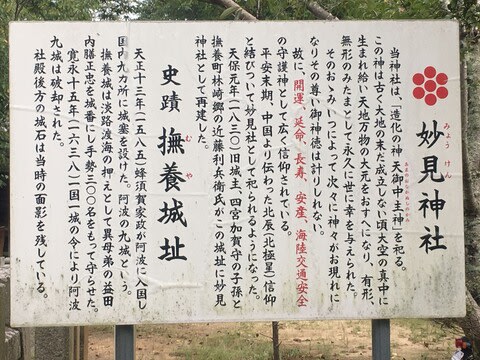 妙見神社
みょうけん
当神社は、「造化の神 天御中主神」を祀る。
この神は古く大地の未だ成立しない頃大空の真中に
生まれ給い天地万物の大元をおすべになり、有形、
無形のみたまとして永久に世に幸を与えられた。
そのおゝみいつによって次々に神々がお現れに
なりその尊い御神徳は計りしれない。
故に、開運、延命、長寿、安産、海陸交通安全
の守護神として広く信仰されている。
平安末期、中国より伝わった北辰(北極星)信仰
と結びついて妙見神社として祀られるようになった。
天保元年(一八三〇)旧城主、四宮加賀守の子孫と
撫養町林崎郷の近藤利兵衛氏がこの城址に妙見
神社として再建した。
史蹟 撫養城址
むや
天正十三年(一五八五)蜂須賀家政が阿波に入国し
国内九カ所に城塞を設けた。阿波の九城という。
撫養城は淡路渡海の押えとして異母弟の益田
内膳正忠を城番にし手勢三〇〇名をもって守らせた。
寛永十五年(一六三八)一国一城の令により阿波
九城は破却された。
社殿後方の城石は当時の面影を残している。